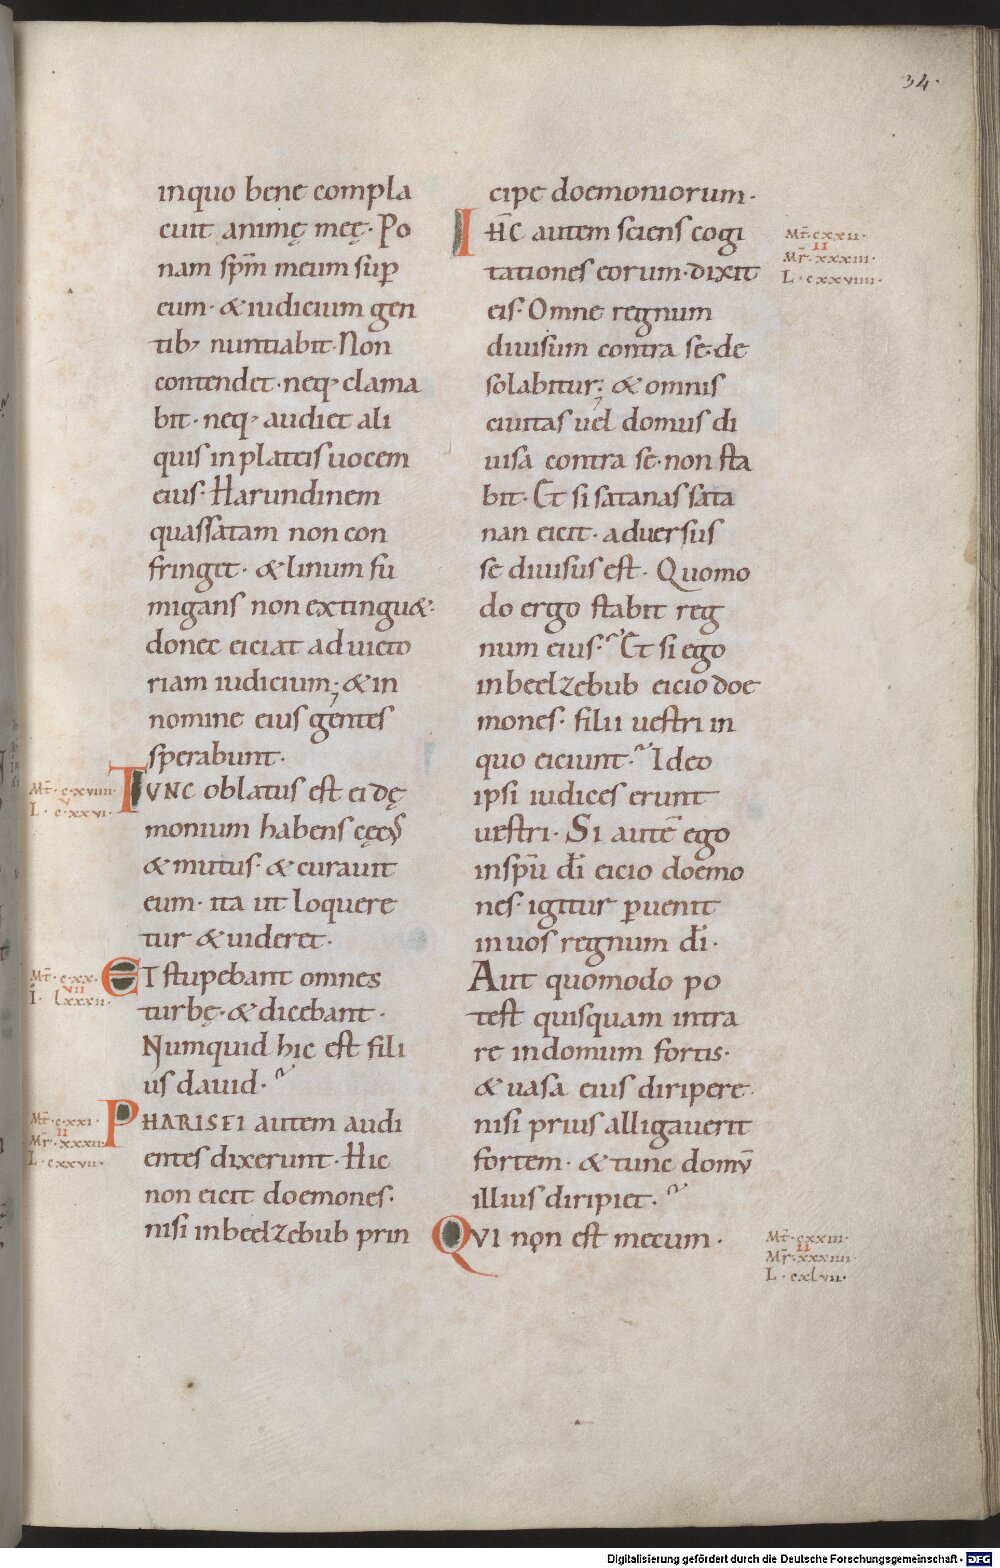 34.
inquo bene compla
cuit animę meę. Po
nam sp̅m meum sup̲
eum. & iudicium gen
tib; nuntiabit. Non
contendet. neq; clama
bit. neq; audiet ali
quis inplateis uocem
eius. Harundinem
quassatam non con
fringet. & linum fu
migans non extingu&.
donec eiciat aduicto
riam iudicium; & in
nomine eius gentes
sperabunt.
Mt̅. c.xviiii.
V
L. c.xxvi.
TVNC oblatus est ei dę
monium habens cęcꝰ
& mutus. & curauit
eum. ita ut loquere
tur & uideret.
Mt̅. c.xx.
VII
I. lxxxii.
ET stupebant omnes
turbę. & dicebant.
Numquid hic est fili
us dauid.
Mt̅. c.xxi.
II
Mr̅. xxxii.
L. cxxvii.
PHARISEI autem audi
entes dixerunt. Hic
non eicit doemones.
nisi inbeelzebub prin
cipe doemoniorum.
IH̅C autem sciens cogi
tationes eorum. dixit
eis. Omne regnum
diuisum contra se. de
solabitur; & omnis
ciuitas uel domus di
uisa contra se. non sta
bit. Et si satanas sata
nan eicit. aduersus
se diuisus est. Quomo
do ergo stabit reg
num eius. Et si ego
inbeelzebub eicio doe
mones. filii uestri in
quo eiciunt. Ideo
ipsi iudices erunt
uestri. Si aute̅ ego
inspu̅ di̅ eicio doemo
nes. igitur p̲uenit
inuos regnum di̅.
Aut quomodo po
test quisquam intra
re indomum fortis.
& uasa eius diripere
nisi prius alligauerit
fortem. & tunc domu̅
illius diripiet.
QVI non est mecum.
Mt̅. cxxii.
II
Mr̅. xxxiii.
L. cxxviiii.
Mt̅. cxxiii.
II
Mr̅. xxxiiii.
L. cxlvii.
Digitalisierung gefördert durch die Deutsche Forschungsgemeinschaft - DFG